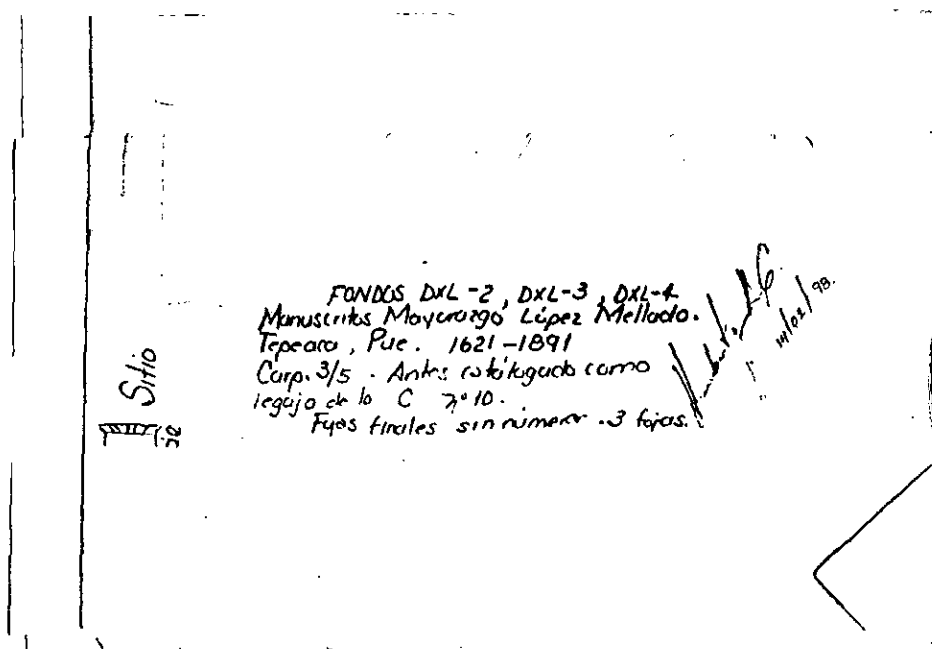 FONDOS DXL-2, DXL-3, DXL-4
Manuscritos Mayorazgo López Mellado.
Tepeaca, Pue. 1621-1891
Carp. 3/5. Antes catalogado como
legajo de la C nº 10.
Fojas finales sin número. 3 fojas.
14/02/98.
Sitio